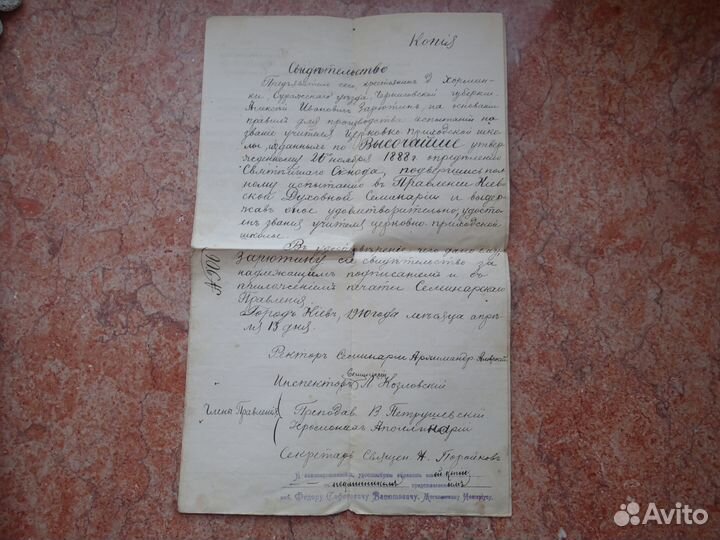 Копія
Свидѣтельство
Предъявитель сего, крестьянинъ д. Хорман-
ки Суражскаго уѣзда, Черниговской губерніи
Алексѣй Ивановичъ Зарютинъ, на основаніи
правилъ для производства испытаній на
званіе учителя церковно приходской шко-
лы, изданныхъ по Высочайше утвер-
жденному 26 ноября 1888 г. опредѣленію
Святѣйшаго Синода, подвергшись пол-
ному испытанію въ Правленіи Кіев-
ской Духовной Семинаріи и выдер-
жавъ оное удовлетворительно, удосто-
енъ званія учителя церковно-приходской
школы.
Въ удостовѣреніе чего дано ему
Зарютину сіе свидѣтельство за
надлежащимъ подписаніемъ и съ
приложеніемъ печати Семинарскаго
Правленія.
Городъ Кіевъ, 1910 года мѣсяца апрѣ-
ля 13 дня.
№ 906
Ректоръ Семинаріи Архимандр. Амвросій
Инспекторъ Л. Козловскій
Члены Правленія
Преподав. В Петрушевскій
Іеромонахъ Аполлинарій
Секретарь Священ. А.
подлинникомъ
Ѳедору
Avito